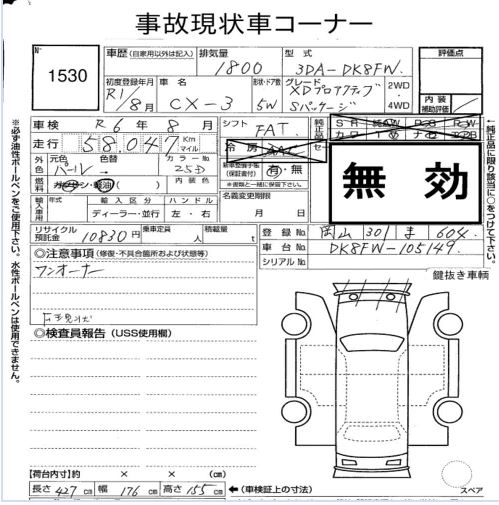 事故現状車コーナー
No 1530
車歴 (自家用以外は記入) 排気量 1800 型式 3DA-DK8FW. 評価点
初度登録年月 R1/8月 車名 CX-3 形状・ドア数 5W グレード XDプロアクティブ Sパッケージ 2WD 4WD 内装 補助評価
車検 R6年8月 シフト FAT. 純正品
走行 58.047 Km マイル 冷房 AAC
外色 元色 パール→ 色替 カラーNo 25D 新車整備手帳(保証書付) 有・無
燃料 ガソリン・軽油( ) 内装の色 ※書類と一緒に保管下さい。
輸入車用 年式 輸入区分 ディーラー・並行 ハンドル 左・右 名義変更期限 月 日
無効
リサイクル預託金 10830円 乗車定員 人 積載量 t 登録No 岡山 301 ま 604
車台No DK8FW-105149.
シリアルNo
◎注意事項 (修復・不具合箇所および状態等) 鍵抜き車輌
ワンオーナー
◎検査員報告 (USS使用欄)
【荷台内寸】 × × (cm)
長さ 427 cm 幅 176 cm 高さ 155 cm ←(車検証上の寸法) スペア
※必ず油性ボールペンをご使用下さい。水性ボールペンは使用できません。
←純正品に限り該当に○をつけて下さい。